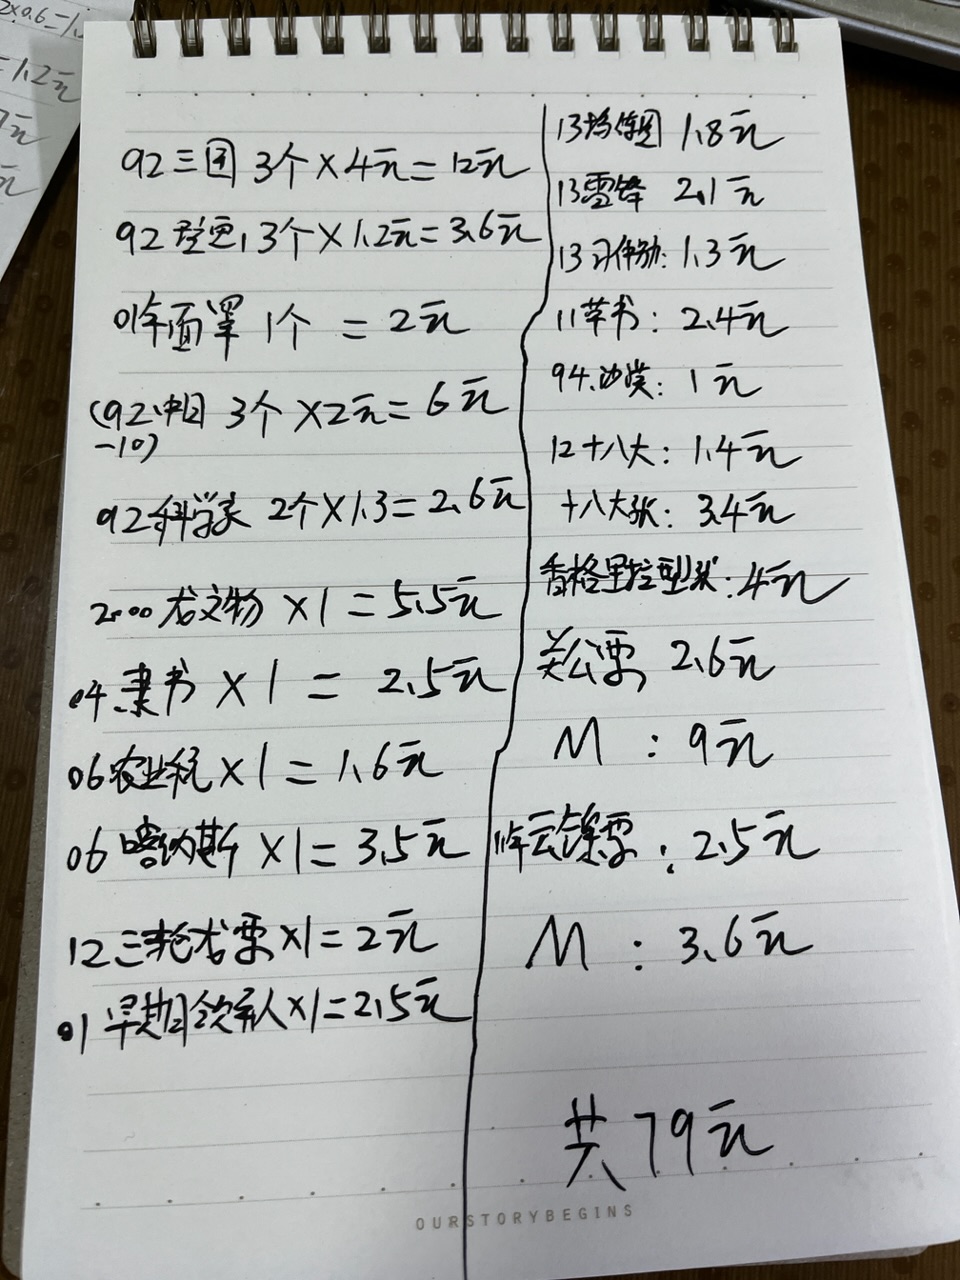 2×0.6=1.
=1.2元
元
元
92三国 3个×4元=12元
92 3个×1.2元=3.6元
01年面罩 1个 = 2元
(92.中日 3个×2元=6元
-10)
92科学家 2个×1.3=2.6元
2000龙文物 ×1=5.5元
04隶书 ×1 = 2.5元
06农业税×1=1.6元
06喀纳斯 ×1=3.5元
12三轮龙票×1=2元
01早期领导人×1=2.5元
13 1.8元
13雷锋 2.1元
13 1.3元
11草书:2.4元
94.沙漠:1元
12十八大:1.4元
十八大张:3.4元
香格里拉型张:4元
关公票 2.6元
M:9元
云锦票:2.5元
M:3.6元
共79元
OURSTORYBEGINS